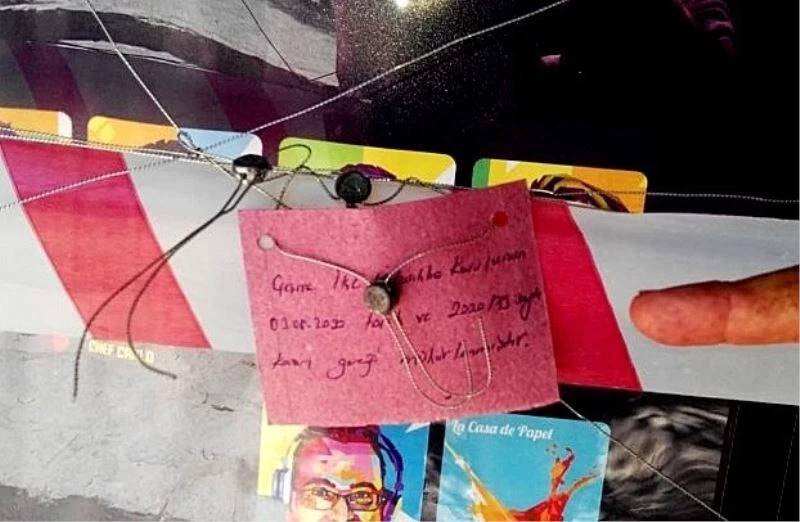 CHEF CAN D
Çeşme İlçe Hıfzıssıhha Kurulunun
03.08.2020 tarih ve 2020/33 sayılı
kararı gereği mühürlenmiştir.
La Casa de Papel